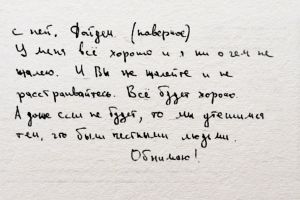 с ней. Файден (наверное)
У меня всё хорошо и я ни о чем не
жалею. И Вы не жалейте и не
расстраивайтесь. Всё будет хорошо.
А даже если не будет, то мы утешимся
тем, что были честными людьми.
Обнимаю!